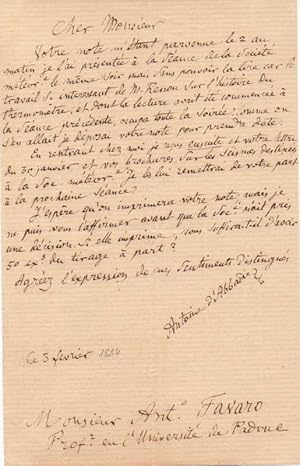 Cher Monsieur
Votre note m'étant parvenue le 2 au
matin je l'ai présentée à la Séance de la Société
météor.e le même soir mais sans pouvoir la lire car le
travail si intéressant de Mr Renou sur l'histoire du
thermomètre, et dont la lecture avait été commencée à
la Séance précédente, occupa toute la soirée. Comme on
s'en allait je déposai votre note pour prendre date.
En rentrant chez moi je reçus ensuite et votre lettre
du 30 janvier et vos brochures sur les Séismes destinées
à la Soc. météor.e Je les lui remettrai de votre part
à la prochaine Séance.
J'espère qu'on imprimera votre note, mais je
ne puis vous l'affirmer avant que la Soc.té n'ait pris
une décision. Si elle imprime, vous suffirait-il d'avoir
50 ex. du tirage à part?
Agréez l'expression de mes Sentiments distingués
Antoine d'Abbadie
ce 3 février 1884
Monsieur Ant.o Favaro
Prof.r en l'Université de Padoue